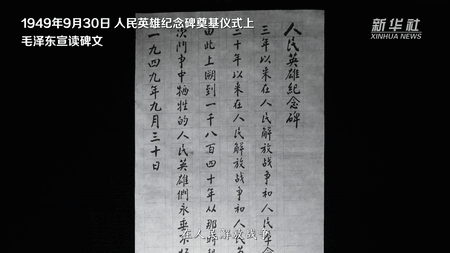 1949年9月30日 人民英雄纪念碑奠基仪式上
毛泽东宣读碑文
新华社
XINHUA NEWS
人民英雄紀念碑
三年以来在人民解放战争和人民革
三十年以来在人民解放战争和人民
由此上溯到一千八百四十年从那时
次鬥争中牺牲的人民英雄們永垂不朽
一九四九年九月三十日
在人民解放战争